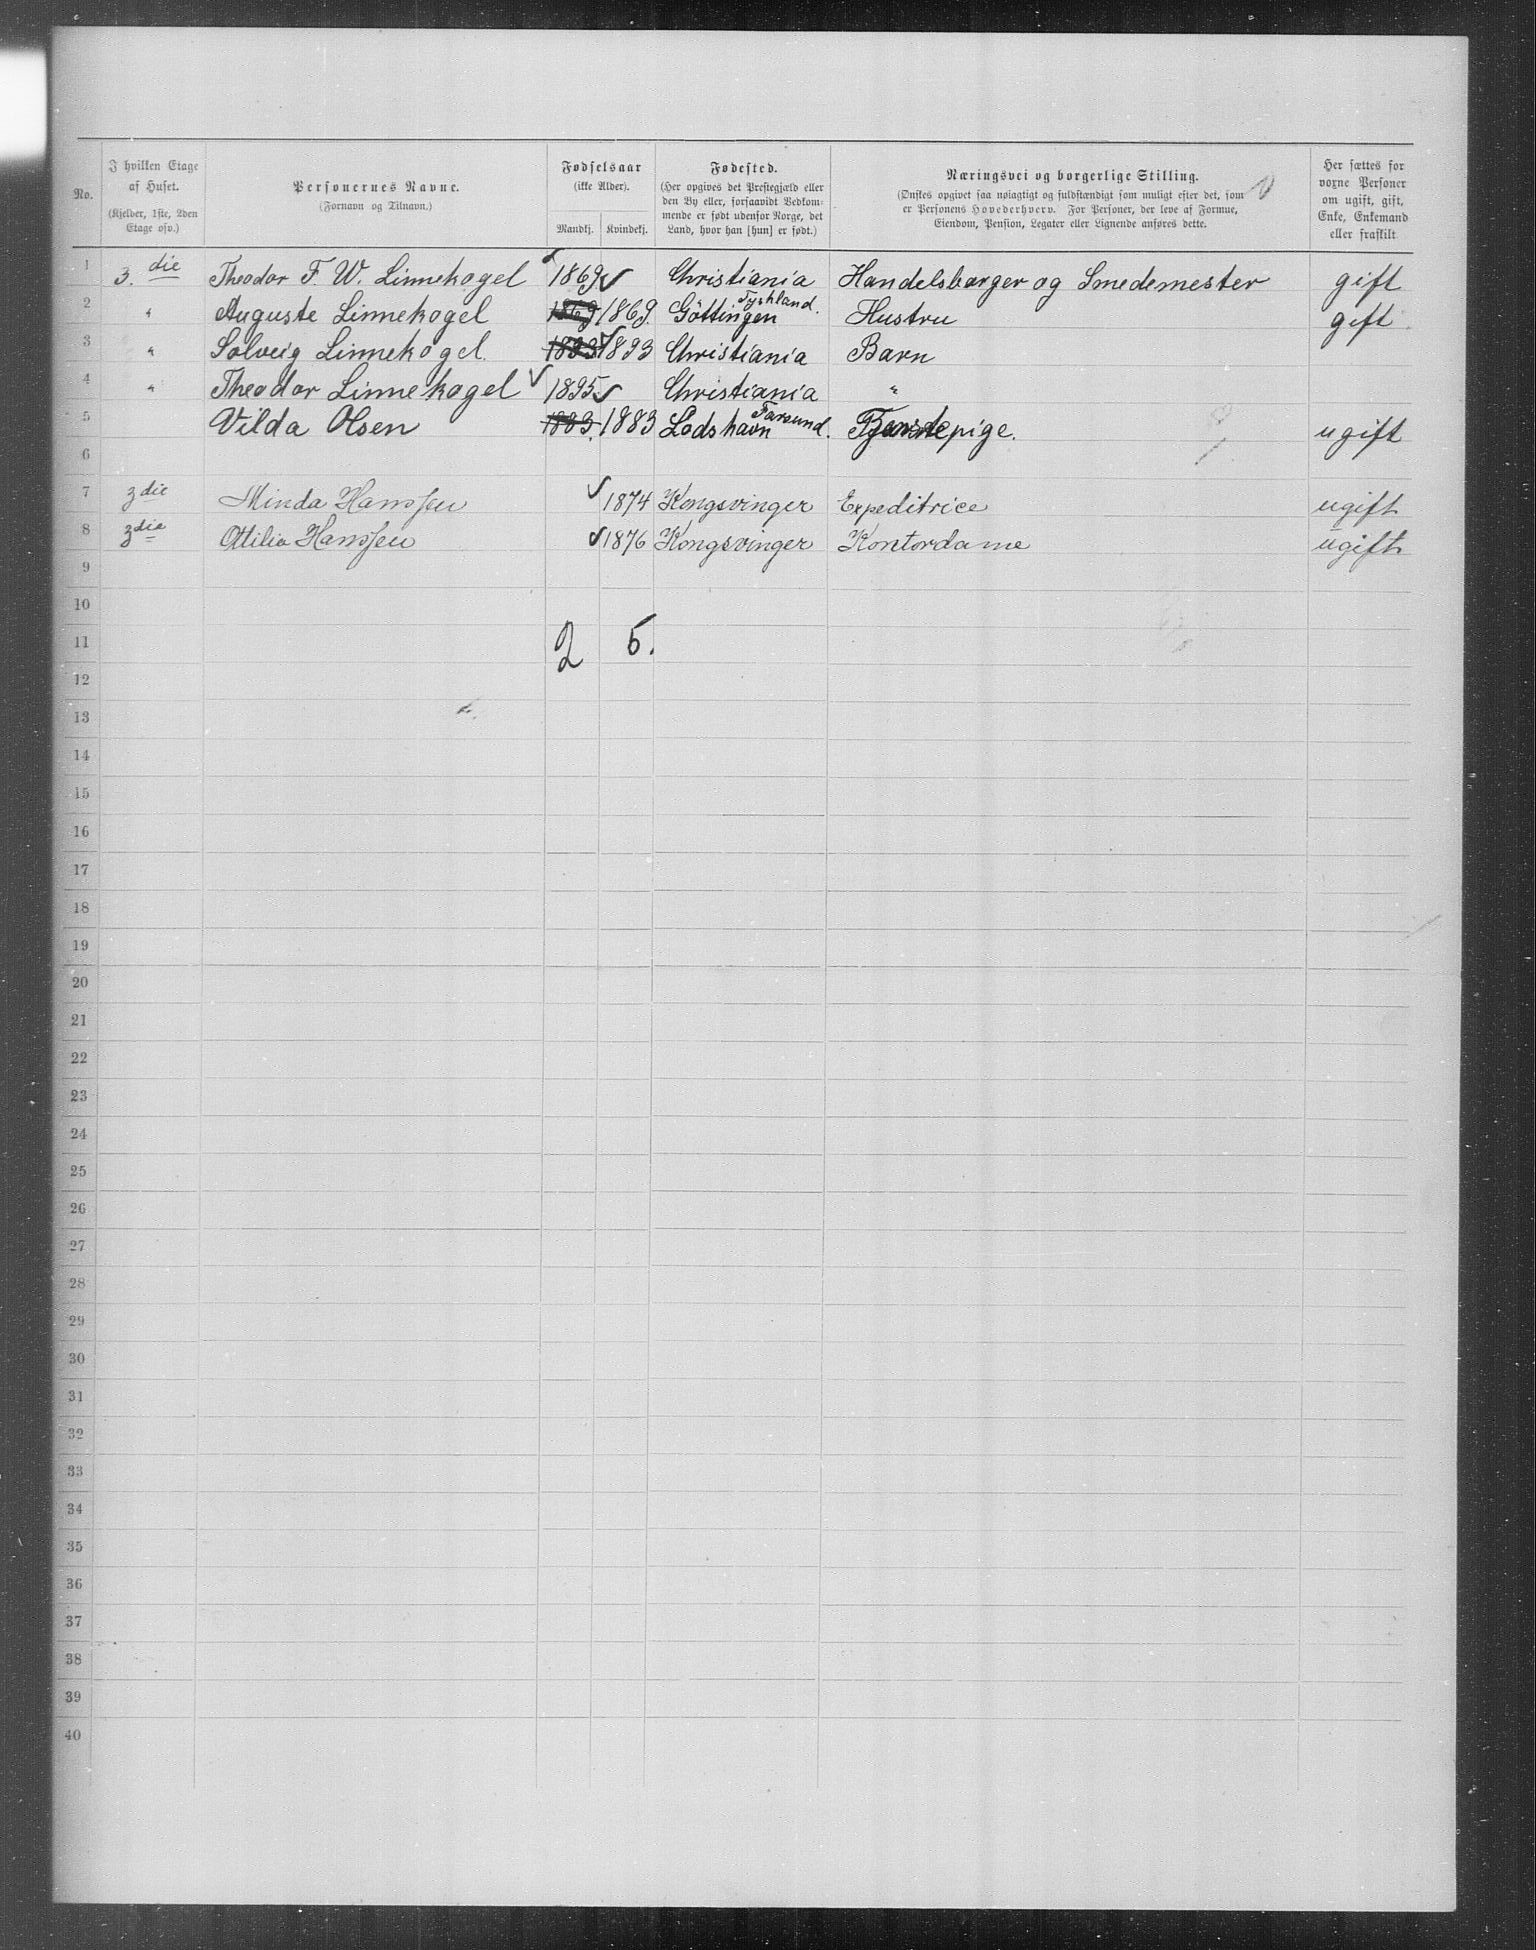 No.
I hvilken Etage af Huset.
(Kjelder, 1ste, 2den Etage osv.)
Personernes Navne.
(Fornavn og Tilnavn.)
Fødselsaar
(ikke Alder).
Mandkj. Kvindekj.
Fødested.
(Her opgives det Prestegjæld eller den By eller, forsaavidt Vedkommende er født udenfor Norge, det Land, hvor han [hun] er født.)
Næringsvei og borgerlige Stilling.
(Ønskes opgivet saa nøiagtigt og fuldstændigt som muligt efter det, som er Personens Hovederhverv. For Personer, der leve af Formue, Eiendom, Pension, Legater eller Lignende anføres dette.
Her sættes for voxne Personer om ugift, gift, Enke, Enkemand eller fraskilt
1 3. die Theodor F. W. Linnekogel 1869 Christiania Handelsborger og Smedemester gift
2 " Auguste Linnekogel 1869 1869. Göttingen Tyskland. Hustru gift.
3 " Solveig Linnekogel. 1893 1893 Christiania Barn
4 " Theodor Linnekogel 1895 Christiania "
5 Vilda Olsen 1883. 1883 Lodshavn Farsund. Tjenestepige. ugift
6
7 3die Minda Hanssen 1874 Kongsvinger Expeditrice ugift
8 3die Ottilia Hanssen 1876 Kongsvinger Kontordame ugift
9
10
11 2 5.
12
13
14
15
16
17
18
19
20
21
22
23
24
25
26
27
28
29
30
31
32
33
34
35
36
37
38
39
40